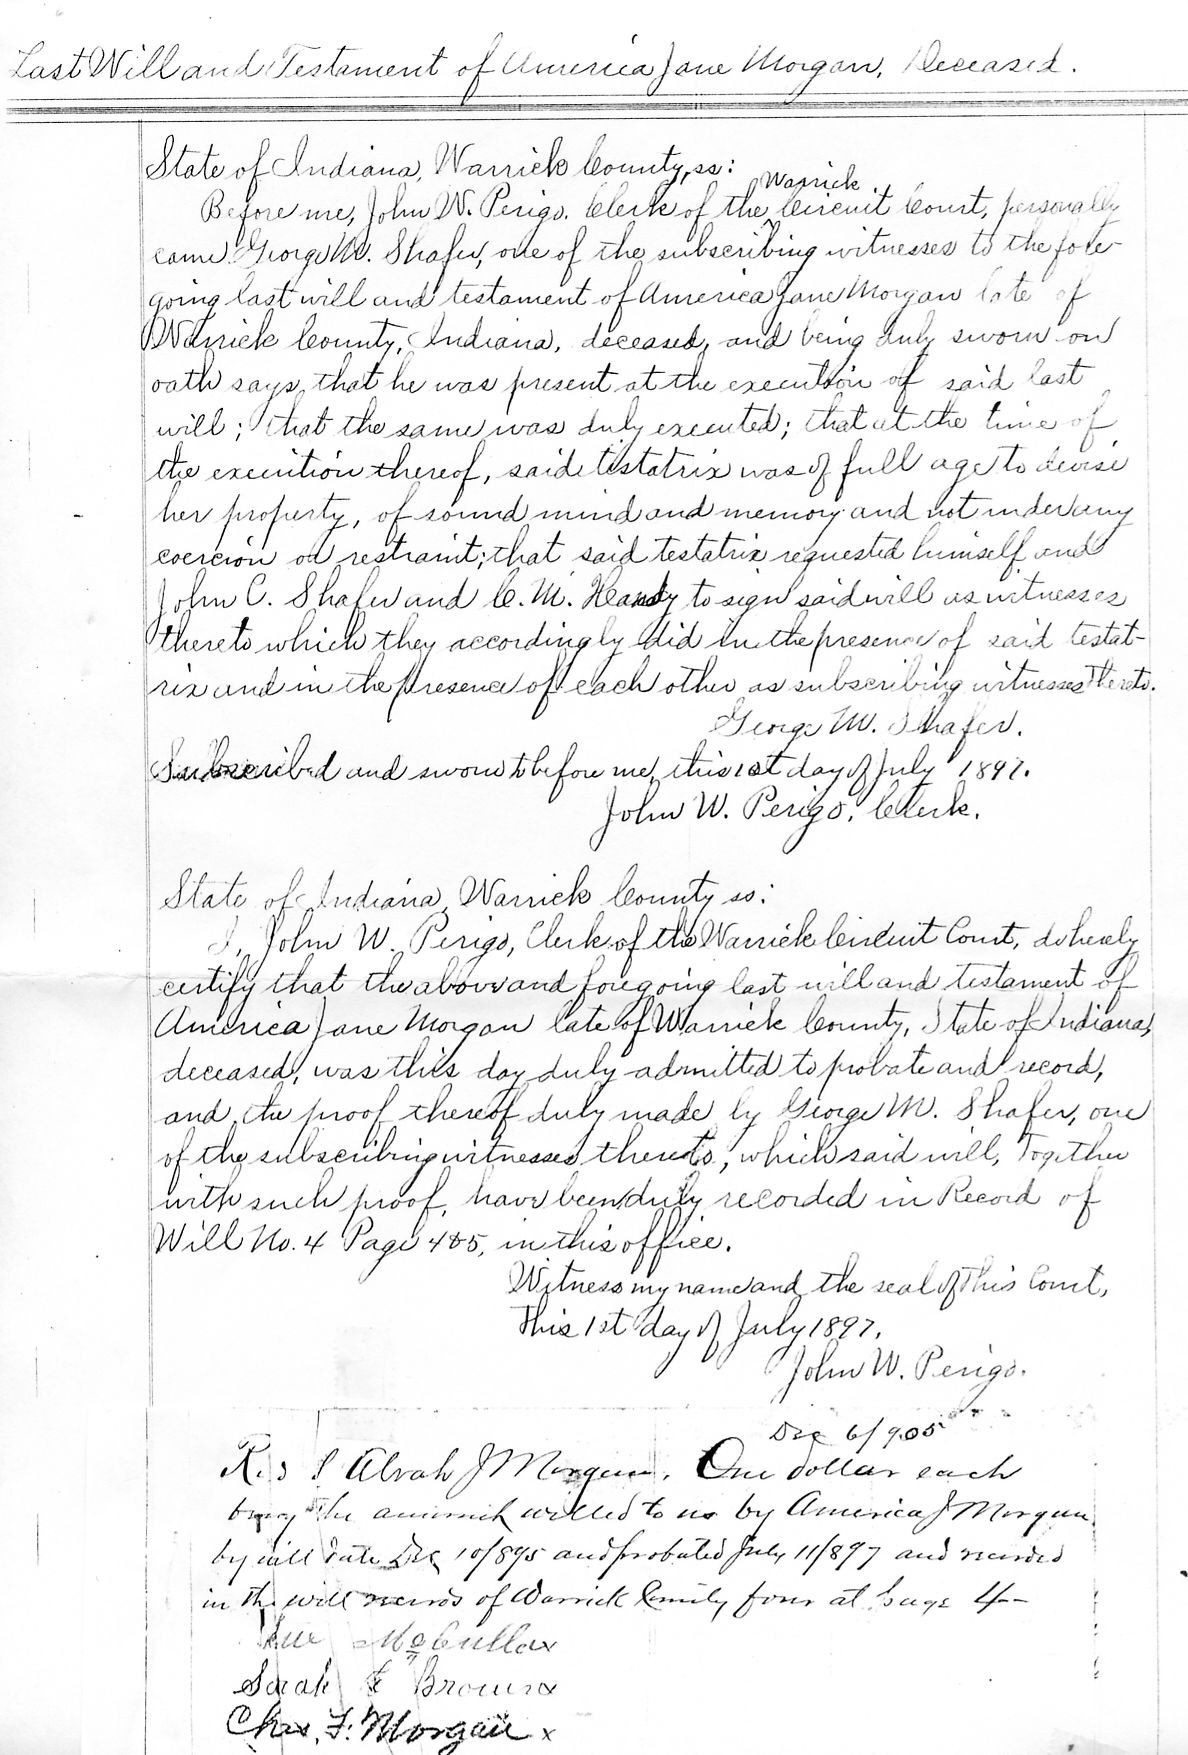 Last Will and Testament of America Jane Morgan, Deceased.
State of Indiana, Warrick County, ss:
Warrick
Before me, John W. Perigo. Clerk of the ^ Circuit Court, personally
came George M. Shafer, one of the subscribing witnesses to the fore-
going last will and testament of America Jane Morgan late of
Warrick County, Indiana, deceased, and being duly sworn on
oath says, that he was present at the execution of said last
will; that the same was duly executed; that at the time of
the execution thereof, said testatrix was of full age to devise
her property, of sound mind and memory and not under any
coercion or restraint; that said testatrix requested himself and
John C. Shafer and C. M. Handy to sign said will as witnesses
thereto which they accordingly did in the presence of said testat-
rix and in the presence of each other as subscribing witnesses thereto.
George M. Shafer.
Subscribed and sworn to before me, this 1st day of July 1897.
John W. Perigo, Clerk.
State of Indiana, Warrick County ss:
I, John W. Perigo, Clerk of the Warrick Circuit Court, do hereby
certify that the above and foregoing last will and testament of
America Jane Morgan late of Warrick County, State of Indiana,
deceased, was this day duly admitted to probate and record,
and the proof thereof duly made by George M. Shafer, one
of the subscribing witnesses thereto, which said will, together
with such proof, have been duly recorded in Record of
Will No. 4 Page 485, in this office.
Witness my name and the seal of this Court,
this 1st day of July 1897.
John W. Perigo.
Dec 6/905
Alvah J Morgan. One dollar each
the willed to us by America J Morgan
by will date Dec 10/895 and probated July 11/897 and recorded
in the will records of Warrick County four at page 4--
McCulla x
Sarah E Brown x
Chas. F. Morgan x